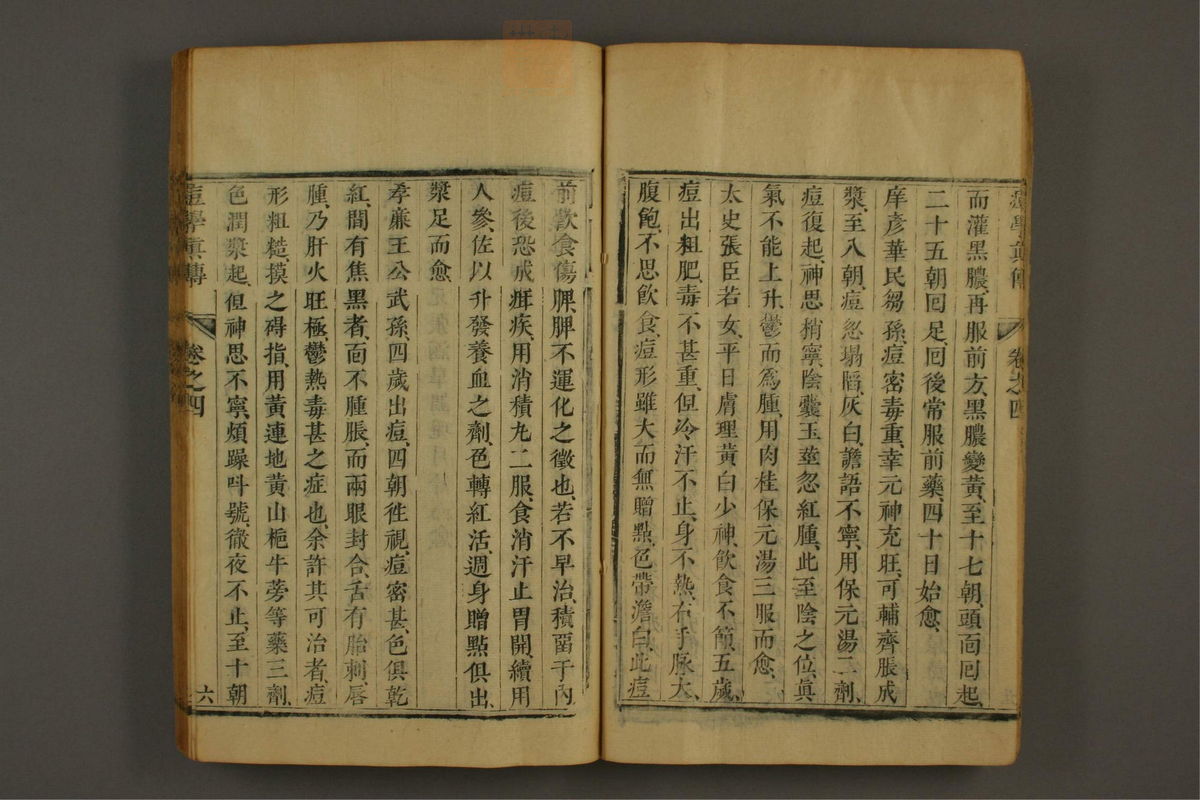 而灌黑膿再服前方黑膿變黃至十七朝頭面囘起
二十五朝囘足囘後常服前藥四十日始愈
庠彥華民芻孫痘密毒重幸元神充旺可輔齊脹成
漿至八朝痘忽塌䧟灰白譫語不寧用保元湯二劑
痘復起神思梢寧陰囊玉莖忽紅腫此至陰之位眞
氣不能上升鬱而爲腫用肉桂保元湯三服而愈
太史張臣若女平日膚理黃白少神飮食不節五歲
痘出粗肥毒不甚重但冷汗不止身不熱右手脉大
腹飽不思飮食痘形雖大而無贈㸃色帶澹白此痘
前歡食傷脾脾不運化之徵也若不早治積畱于內
痘後恐成疳疾用消積丸二服食消汗止胃開續用
人參佐以升發養血之劑色轉紅活週身贈㸃俱出
漿足而愈
孝廉王公武孫四歲出痘四朝徃視痘密甚色俱乾
紅間有焦黑者面不腫脹而兩眼封合舌有胎刺唇
腫乃肝火旺極鬱熱毒甚之症也余許其可治者痘
形粗糙摸之碍指用黃連地黃山梔牛蒡等藥三劑
色潤漿起但神思不寧煩躁呌號徹夜不止至十朝
痘學眞傳 卷之四 六